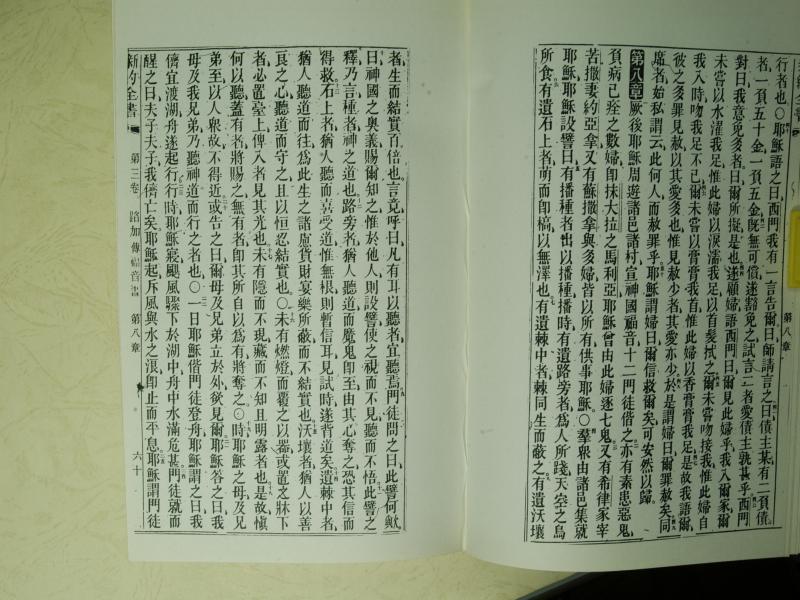 行者也○耶穌語之曰西門我有一言告爾曰師請言之曰債主某有二負債
者一負五十金一負五金旣無可償遂豁免之試言二者愛債主孰甚乎西門
對曰我意免多者曰爾所擬是也遂顧婦語西門曰爾見此婦乎我入爾家爾
未嘗以水濯我足惟此婦以淚濡我足以首髮拭之爾未嘗吻接我惟此婦自
我入時吻我足不已爾未嘗以膏膏我首惟此婦以香膏膏我足是故我語爾
彼之多罪見赦以其愛多也惟見赦少者其愛亦少於是謂婦曰爾罪赦矣同
席者始私謂云此何人而赦罪乎耶穌謂婦曰爾信救爾矣可安然以歸
第八章厥後耶穌周遊諸邑諸村宣神國福音十二門徒偕之亦有素患惡鬼
負病已痊之數婦卽抹大拉之馬利亞耶穌曾由此婦逐七鬼又有希律家宰
苦撒妻約亞拿又有蘇撒拿與多婦皆以所有供事耶穌○羣衆由諸邑集就
耶穌耶穌設譬曰有播種者出以播種播時有遺路旁者爲人所踐天空之鳥
所食有遺石上者萌而卽槁以無澤也有遺棘中者棘同生而蔽之有遺沃壤
第八章
者生而結實百倍也言竟呼曰凡有耳以聽者宜聽焉門徒問之曰此譬何歟
曰神國之奥義賜爾知之惟於他人則設譬使之視而不見聽而不悟此譬之
釋乃言種者神之道也路旁者猶人聽道而魔鬼卽至由其心奪之恐其信而
得救石上者猶人聽而喜受道惟無根則暫信耳見試時遂背道矣遺棘中者
猶人聽道而往爲此生之諸慮貨財宴樂所蔽而不結實也沃壤者猶人以善
良之心聽道而守之且以恒忍結實也○未有燃燈而覆之以器或置之牀下
者必置臺上俾入者見其光也未有隱而不現藏而不知且明露者也是故愼
何以聽蓋有者將賜之無有者卽其所自以爲有將奪之○時耶穌之母及兄
弟至以人衆故不得近或告之曰爾母及兄弟立於外欲見爾耶穌答之曰我
母及我兄弟乃聽神道而行之者也○一日耶穌偕門徒登舟耶穌謂之曰我
儕宜渡湖舟遂起行行時耶穌寢颶風驟下於湖中舟中水滿危甚門徒就而
醒之曰夫子夫子我儕亡矣耶穌起斥風與水之浪卽止而平息耶穌謂門徒
新約全書
第三卷
路加傳福音書
第八章
六十